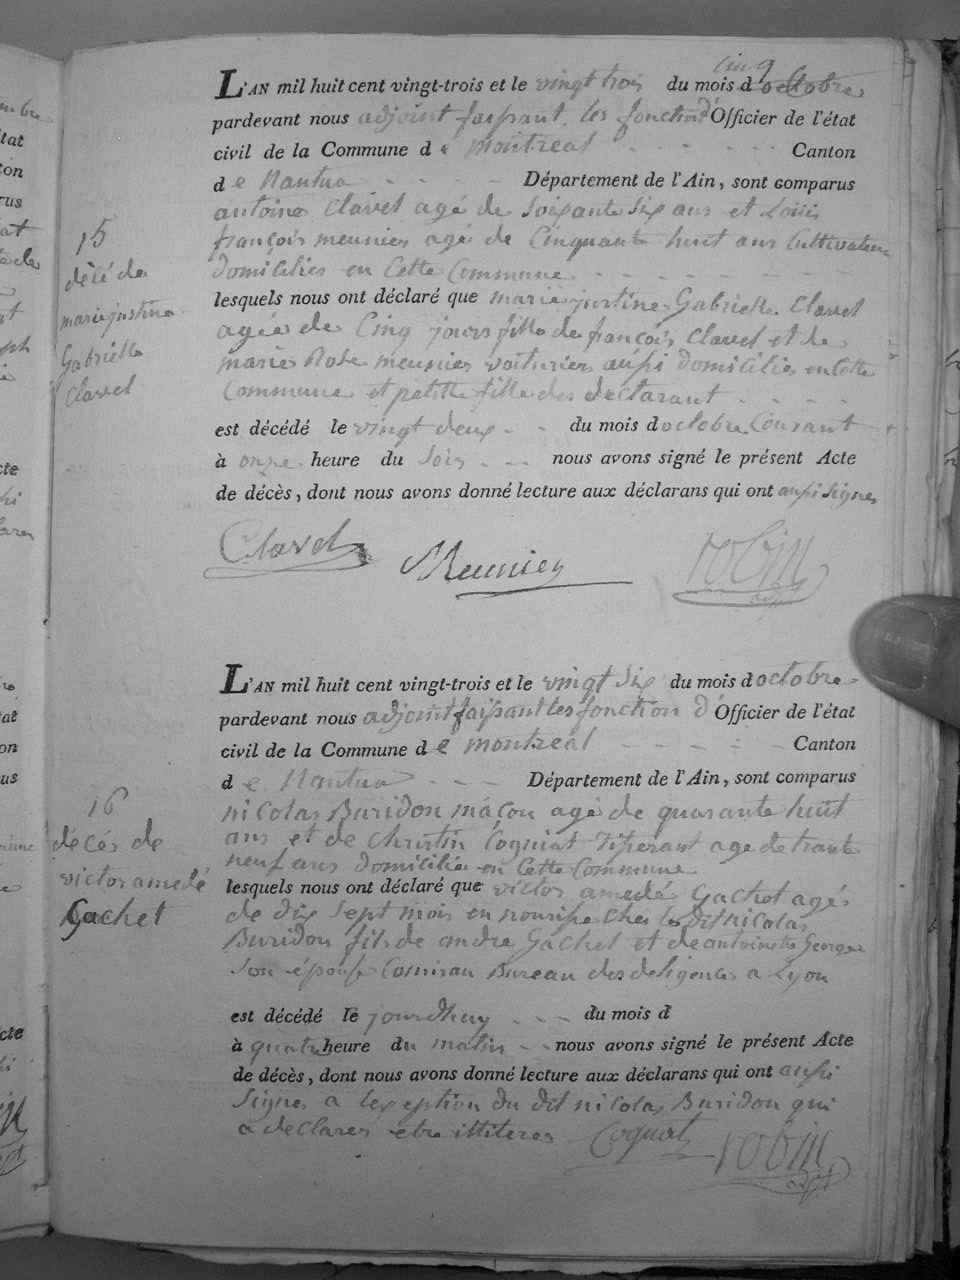 cinq
L'AN mil huit cent vingt-trois et le vingt trois du mois d'octobre
pardevant nous adjoint faisant les fonction d'Officier de l'état
civil de la Commune de montreal Canton
de Nantua Département de l'Ain, sont comparus
antoine Clavel agé de soixante six ans et Louis
françois meunier agé de Cinquante huit ans Cultivateurs
domicilies en Cette Commune
15
décé de
marie justine
Gabrielle
Clavel
lesquels nous ont déclaré que marie justine Gabrielle Clavel
agée de Cinq jours fille de françois Clavel et de
marie Rose meunier voiturier aussi domicilies en Cette
Commune et petitte fille des declarant
est décédé le vingt deux du mois d octobre Courant
à onze heure du soir nous avons signé le présent Acte
de décès, dont nous avons donné lecture aux déclarans qui ont aussi signes
Clavel Meunier robin
adjt
L'AN mil huit cent vingt-trois et le vingt six du mois d octobre
pardevant nous adjoint faisant les fonction d'Officier de l'état
civil de la Commune de montreal Canton
de Nantua Département de l'Ain, sont comparus
16
décés de
victor amedé
Gachet
nicolas Buridon maçon agé de quarante huit
ans et de Christin Cogniat age de trante
neuf ans domicilie en Cette Commune
lesquels nous ont déclaré que victor amedé Gachet agé
de dix sept mois en nourisse ches le dit nicolas
Buridon fils de andre Gachet et de antoinette George
son épouse Bureau des deligences a Lyon
est décédé le jourdhuy du mois d
à quatre heure du matin nous avons signé le présent Acte
de décès, dont nous avons donné lecture aux déclarans qui ont aussi
signes a lexception du dit nicolas Buridon qui
a declares etre illiteres Cogniat robin
adjt